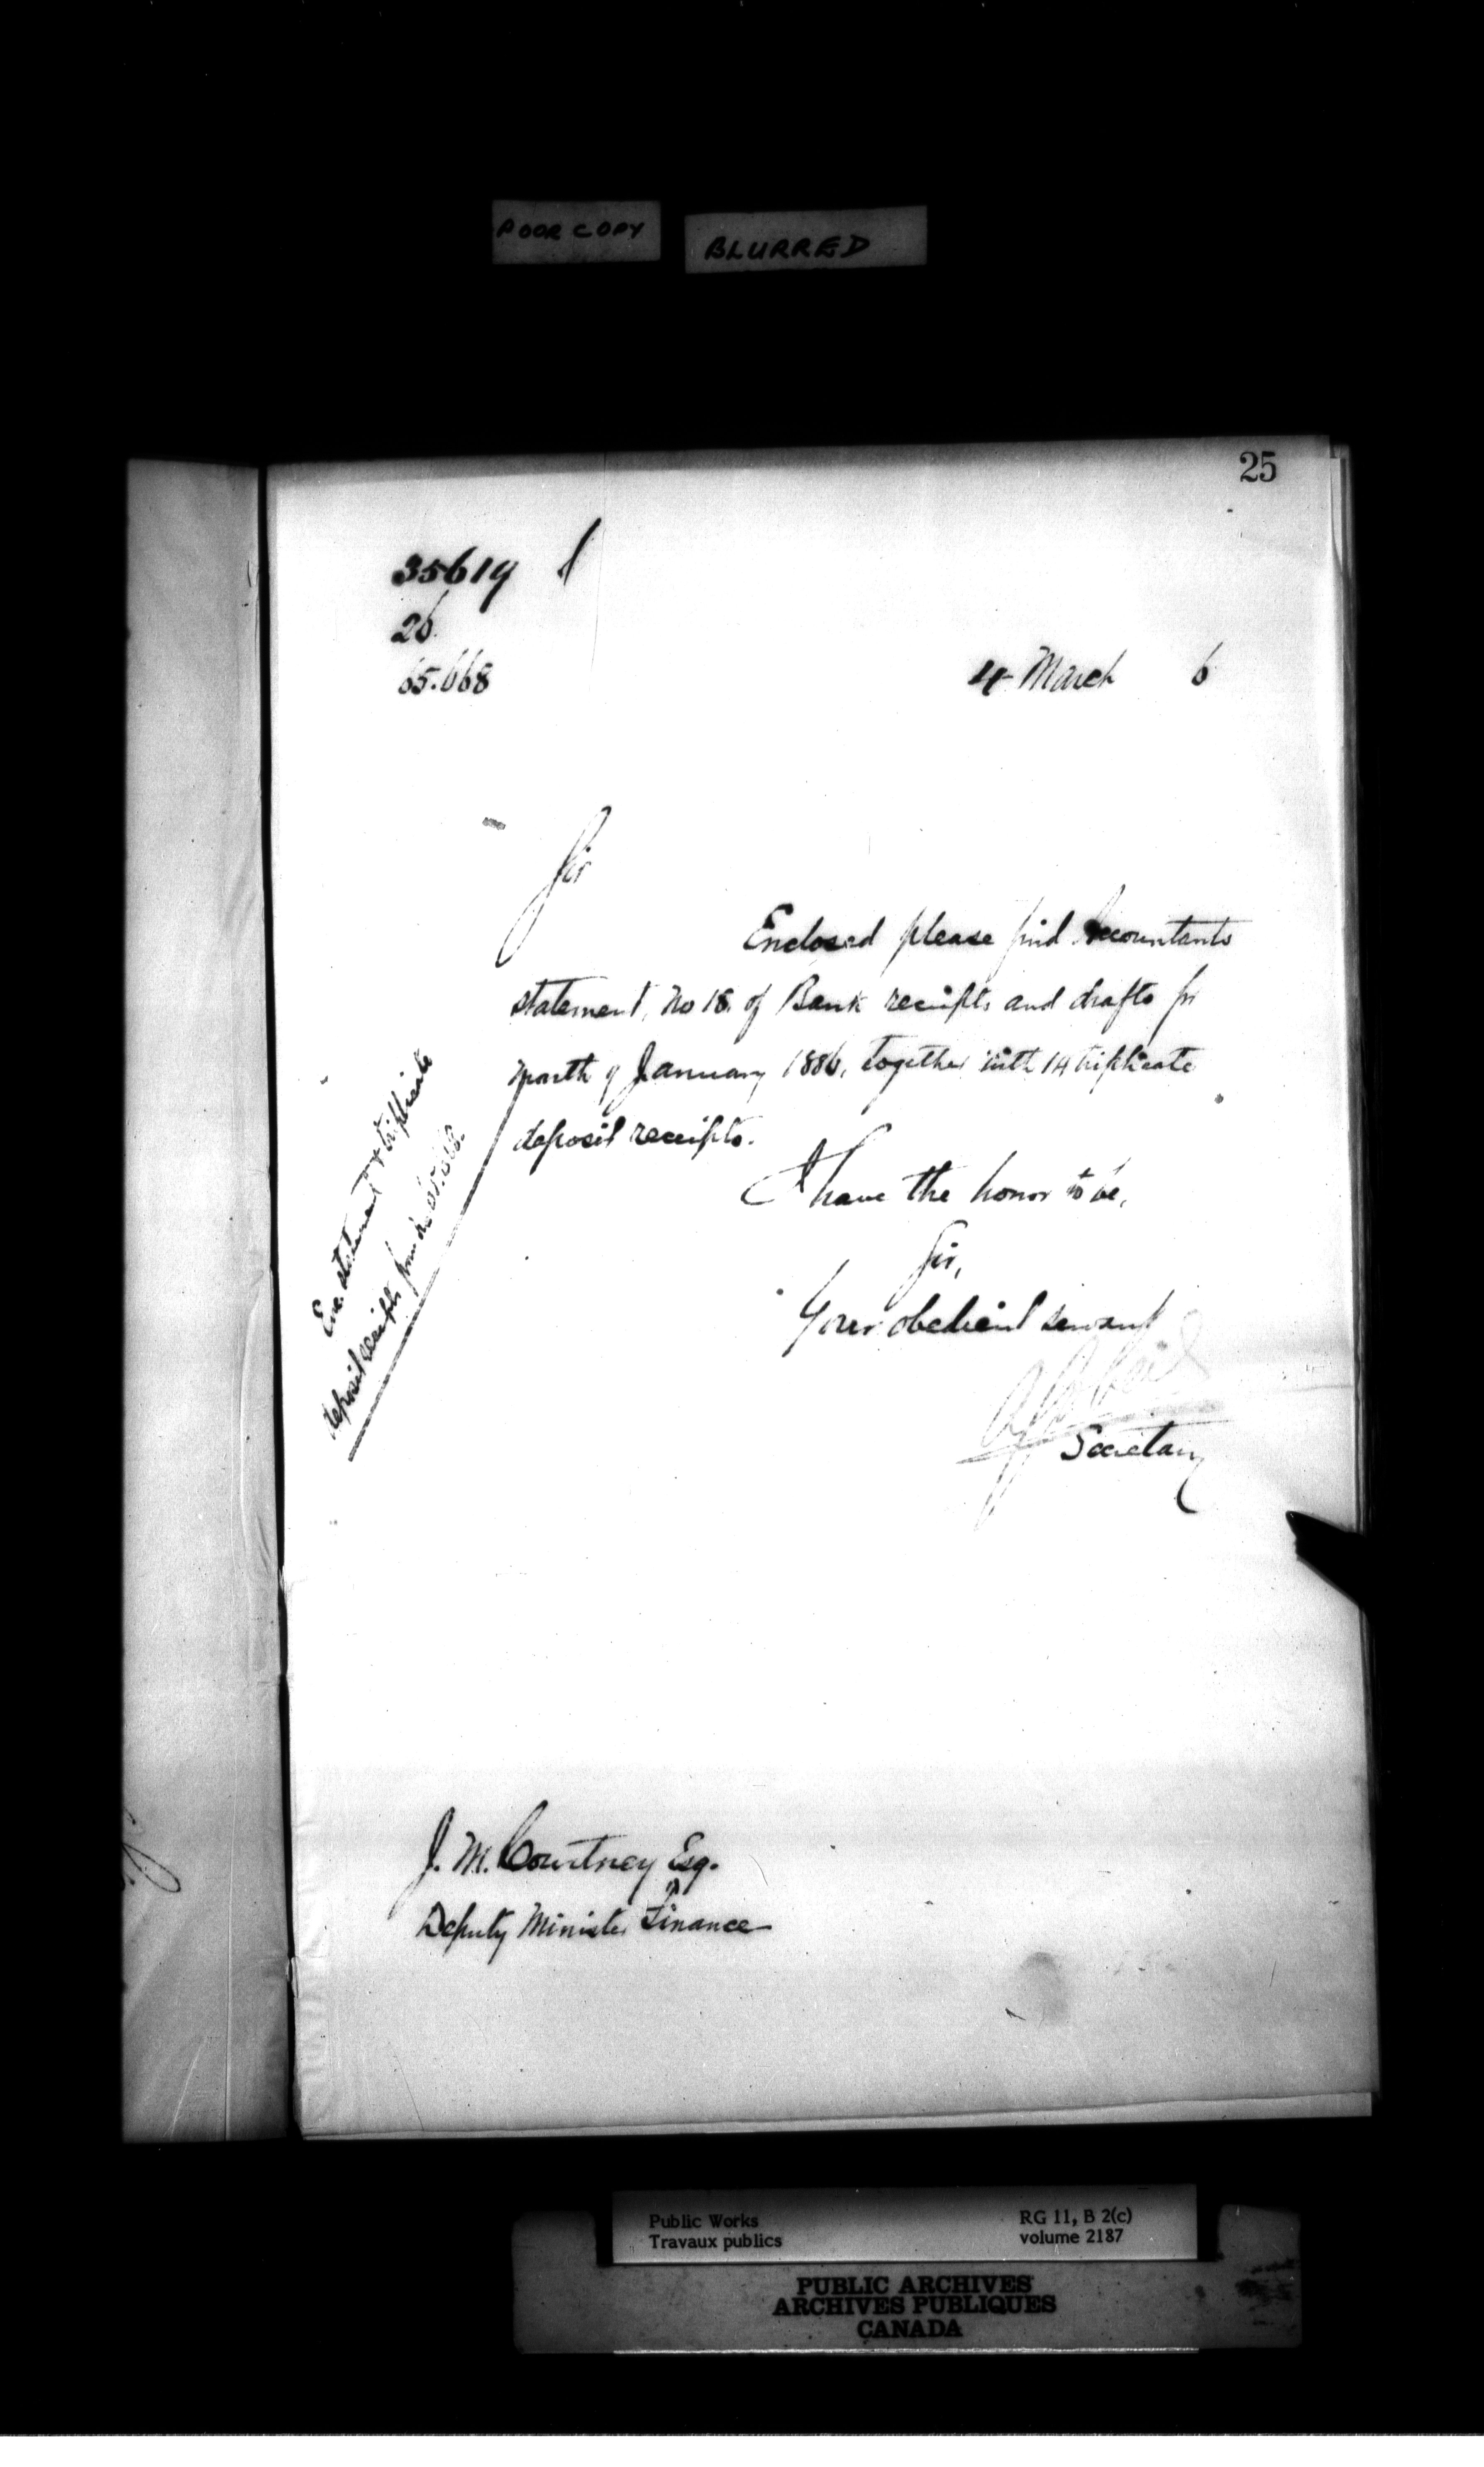 POOR COPY
BLURRED
25
35619
26.
65.668
4 March 6
Sir
Enclosed please find Accountants
statement, No 18. of Bank receipts and drafts for
month of January 1886, together with 14 triplicate
deposit receipts.
I have the honor to be,
Sir,
Your obedient servant
Secretary
Enc. statement & triplicate
deposit receipts from No 65.668.
J. M. Courtney Esq.
Deputy Minister Finance
Public Works
Travaux publics
RG 11, B 2(c)
volume 2187
PUBLIC ARCHIVES
ARCHIVES PUBLIQUES
CANADA